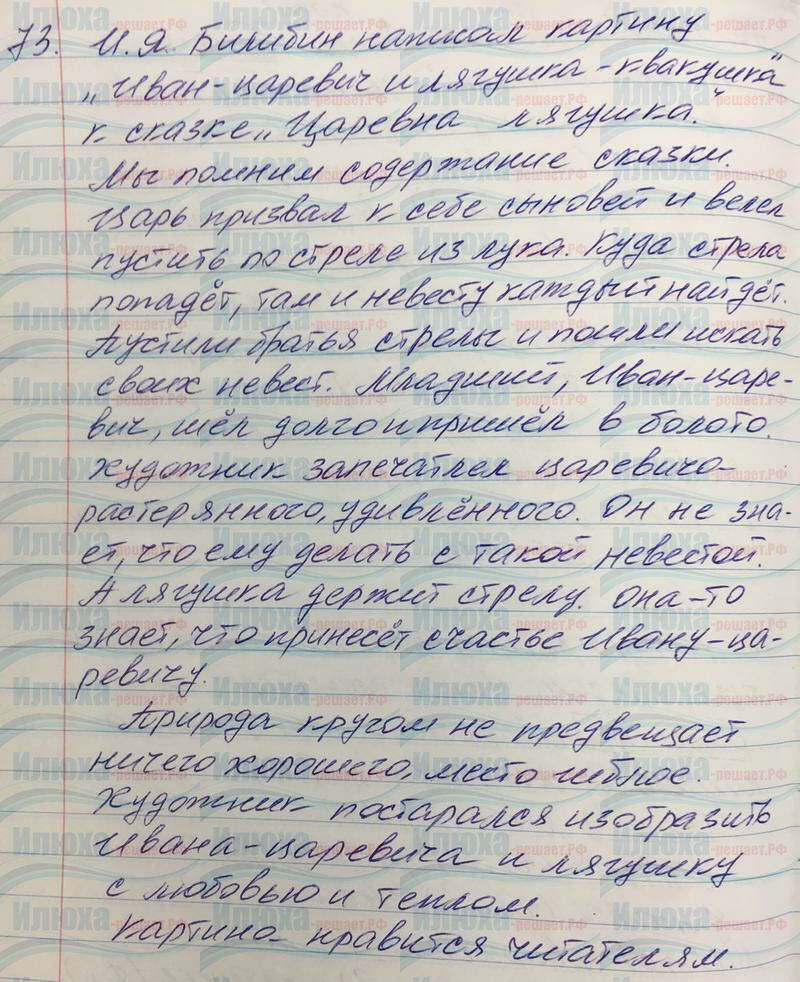 73. И. Я. Билибин написал картину
„Иван-царевич и лягушка-квакушка"
к сказке „Царевна лягушка."
Мы помним содержание сказки.
Царь призвал к себе сыновей и велел
пустить по стреле из лука. Куда стрела
попадёт, там и невесту каждый найдёт.
Пустили братья стрелы и пошли искать
своих невест. Младший, Иван-царе-
вич, шёл долго и пришёл в болото.
Художник запечатлел царевича
растерянного, удивлённого. Он не зна-
ет, что ему делать с такой невестой.
А лягушка держит стрелу. Она-то
знает, что принесёт счастье Ивану-ца-
ревичу.
Природа кругом не предвещает
ничего хорошего, место гиблое.
Художник постарался изобразить
Ивана-царевича и лягушку
с любовью и теплом.
Картина нравится читателям.
Илюха-решает.РФ